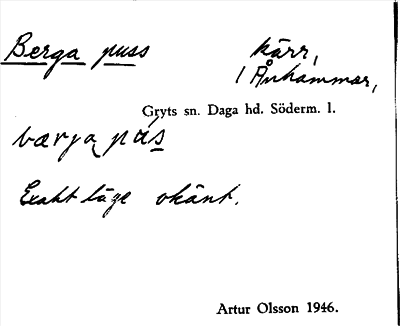 Berga puss kärr,
1 Ånhammar,
Gryts sn. Daga hd. Söderm. l.
bærja pús
Exakt läge okänt.
Artur Olsson 1946.